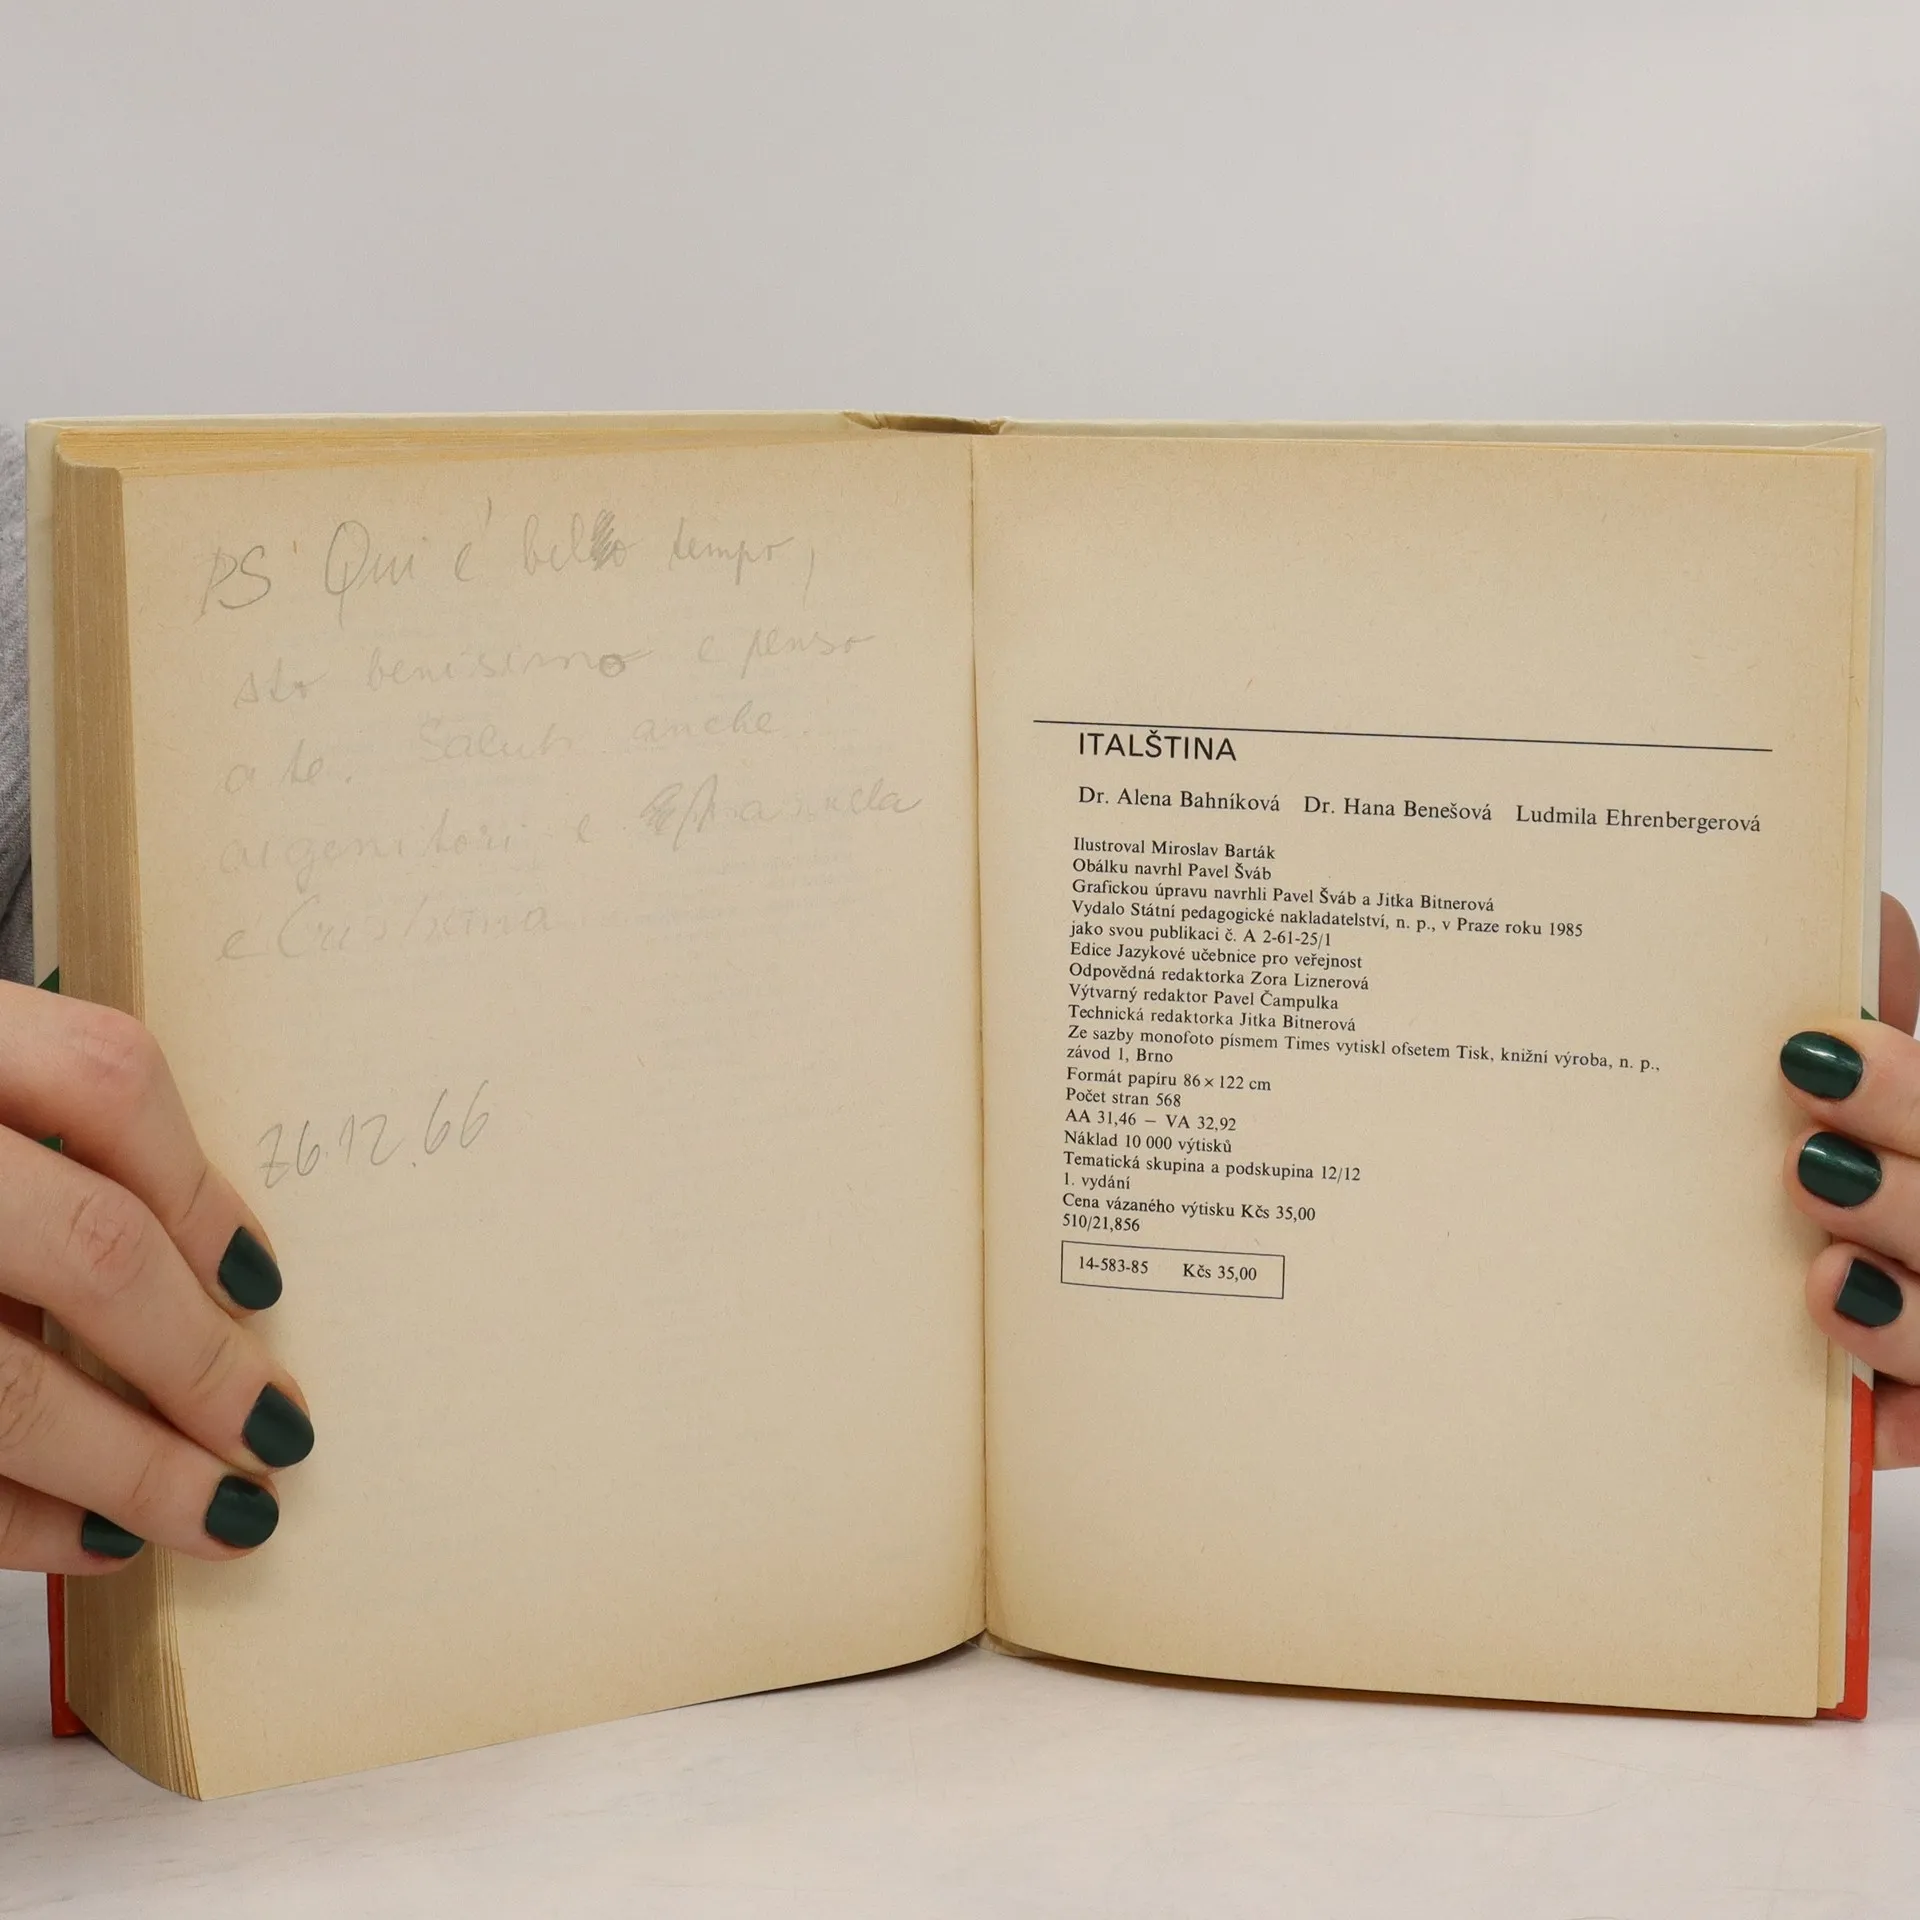 PS Qui é bello tempo,
sto benissimo e penso
a te. Saluti anche
ai genitori e
e Cristina
26.12.66
ITALŠTINA
Dr. Alena Bahníková Dr. Hana Benešová Ludmila Ehrenbergerová
Ilustroval Miroslav Barták
Obálku navrhl Pavel Šváb
Grafickou úpravu navrhli Pavel Šváb a Jitka Bitnerová
Vydalo Státní pedagogické nakladatelství, n. p., v Praze roku 1985
jako svou publikaci č. A 2-61-25/1
Edice Jazykové učebnice pro veřejnost
Odpovědná redaktorka Zora Liznerová
Výtvarný redaktor Pavel Čampulka
Technická redaktorka Jitka Bitnerová
Ze sazby monofoto písmem Times vytiskl ofsetem Tisk, knižní výroba, n. p.,
závod 1, Brno
Formát papíru 86 × 122 cm
Počet stran 568
AA 31,46 – VA 32,92
Náklad 10 000 výtisků
Tematická skupina a podskupina 12/12
1. vydání
Cena vázaného výtisku Kčs 35,00
510/21,856
14-583-85 Kčs 35,00